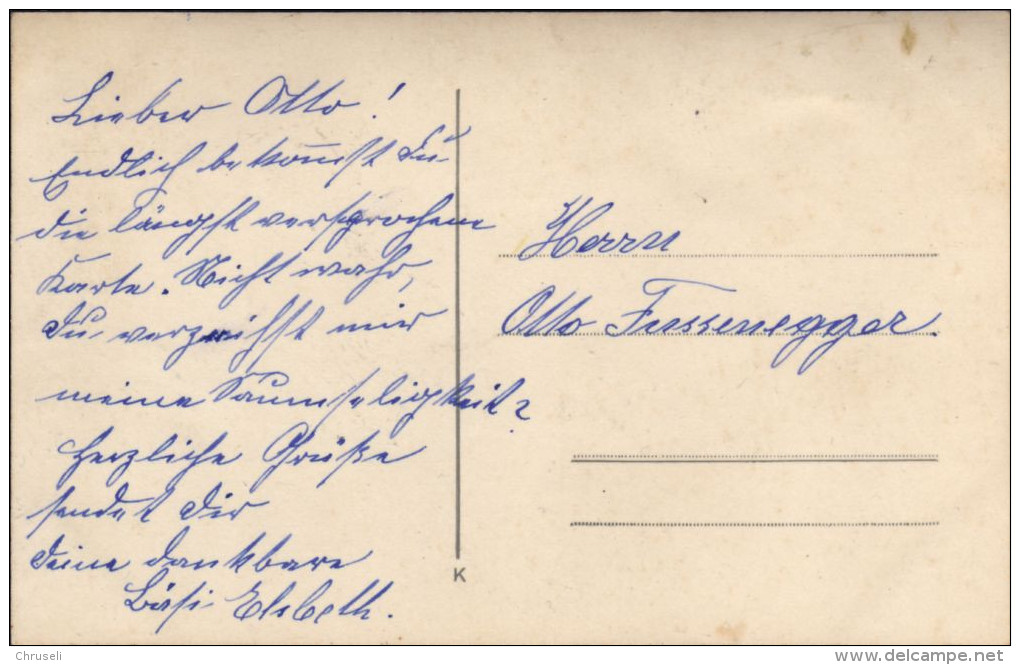 Lieber Otto!
Endlich bekommst Du
die längst versprochene
Karte. Nicht wahr,
Du verzeihst mir
meine Saumseligkeit?
Herzliche Grüße
sendet Dir
Deine dankbare
Bäsi Elsbeth.
Herrn
Otto Fussenegger.
K
Chruseli
delcampe.net